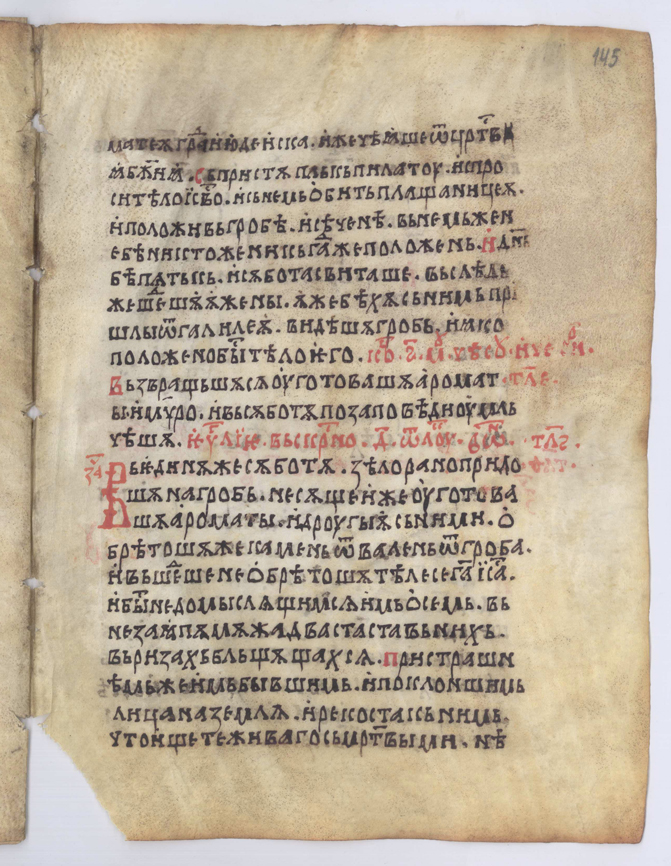 145
матеѧ града июдеиска. иже чѣаше ѿ црⷭ҇тви
ꙗ бж҃иꙗ. сь пристѫпль кь пилатоу. испро
си тѣло і҆св҃о. и сьнемь обить плащаницеѫ.
и положи вь гробѣ. исѣченѣ. вь немьже н
е бѣ никтоже никьгдаже положень. и дн҃ь
бѣ пѧтькь. и сѫбота свиташе. вь слѣдь
же шедьшѫѧ жены. ѧже бѣхѫ сь нимь при
шлы ѿ галилеѫ. видѣшѫ гробь. и ꙗко
положено бы тѣло его.
Вьзвращьшѫ сѧ оуготовашѫ аромат
ы и мѵро. и вь сѫботѫ по заповѣди оумль
чѣшѫ.
Вь единѫже сѫботѫ. зѣло рано придо
шѫ на гробь. несѫще ѥже оуготова
шѫ ароматы. и дроугыѫ сь ними. о
брѣтошѫ же камень ѿвалень ѿ гроба.
и вьшедьше не обрѣтошѫ тѣлесе га҃ і҆са҃.
и бы недомыслѧщимсѧ имь о семь. вь
незаапѫ мѫжа два стаста вь нихь.
вь ризахь бльщѫщахсѧ. пристраши
ѣмьже имь бывшимь. и поклоншимь
лица на землѫ. и рекоста кь нимь.
что ищете живаго сь мрт҃выми. нѣ